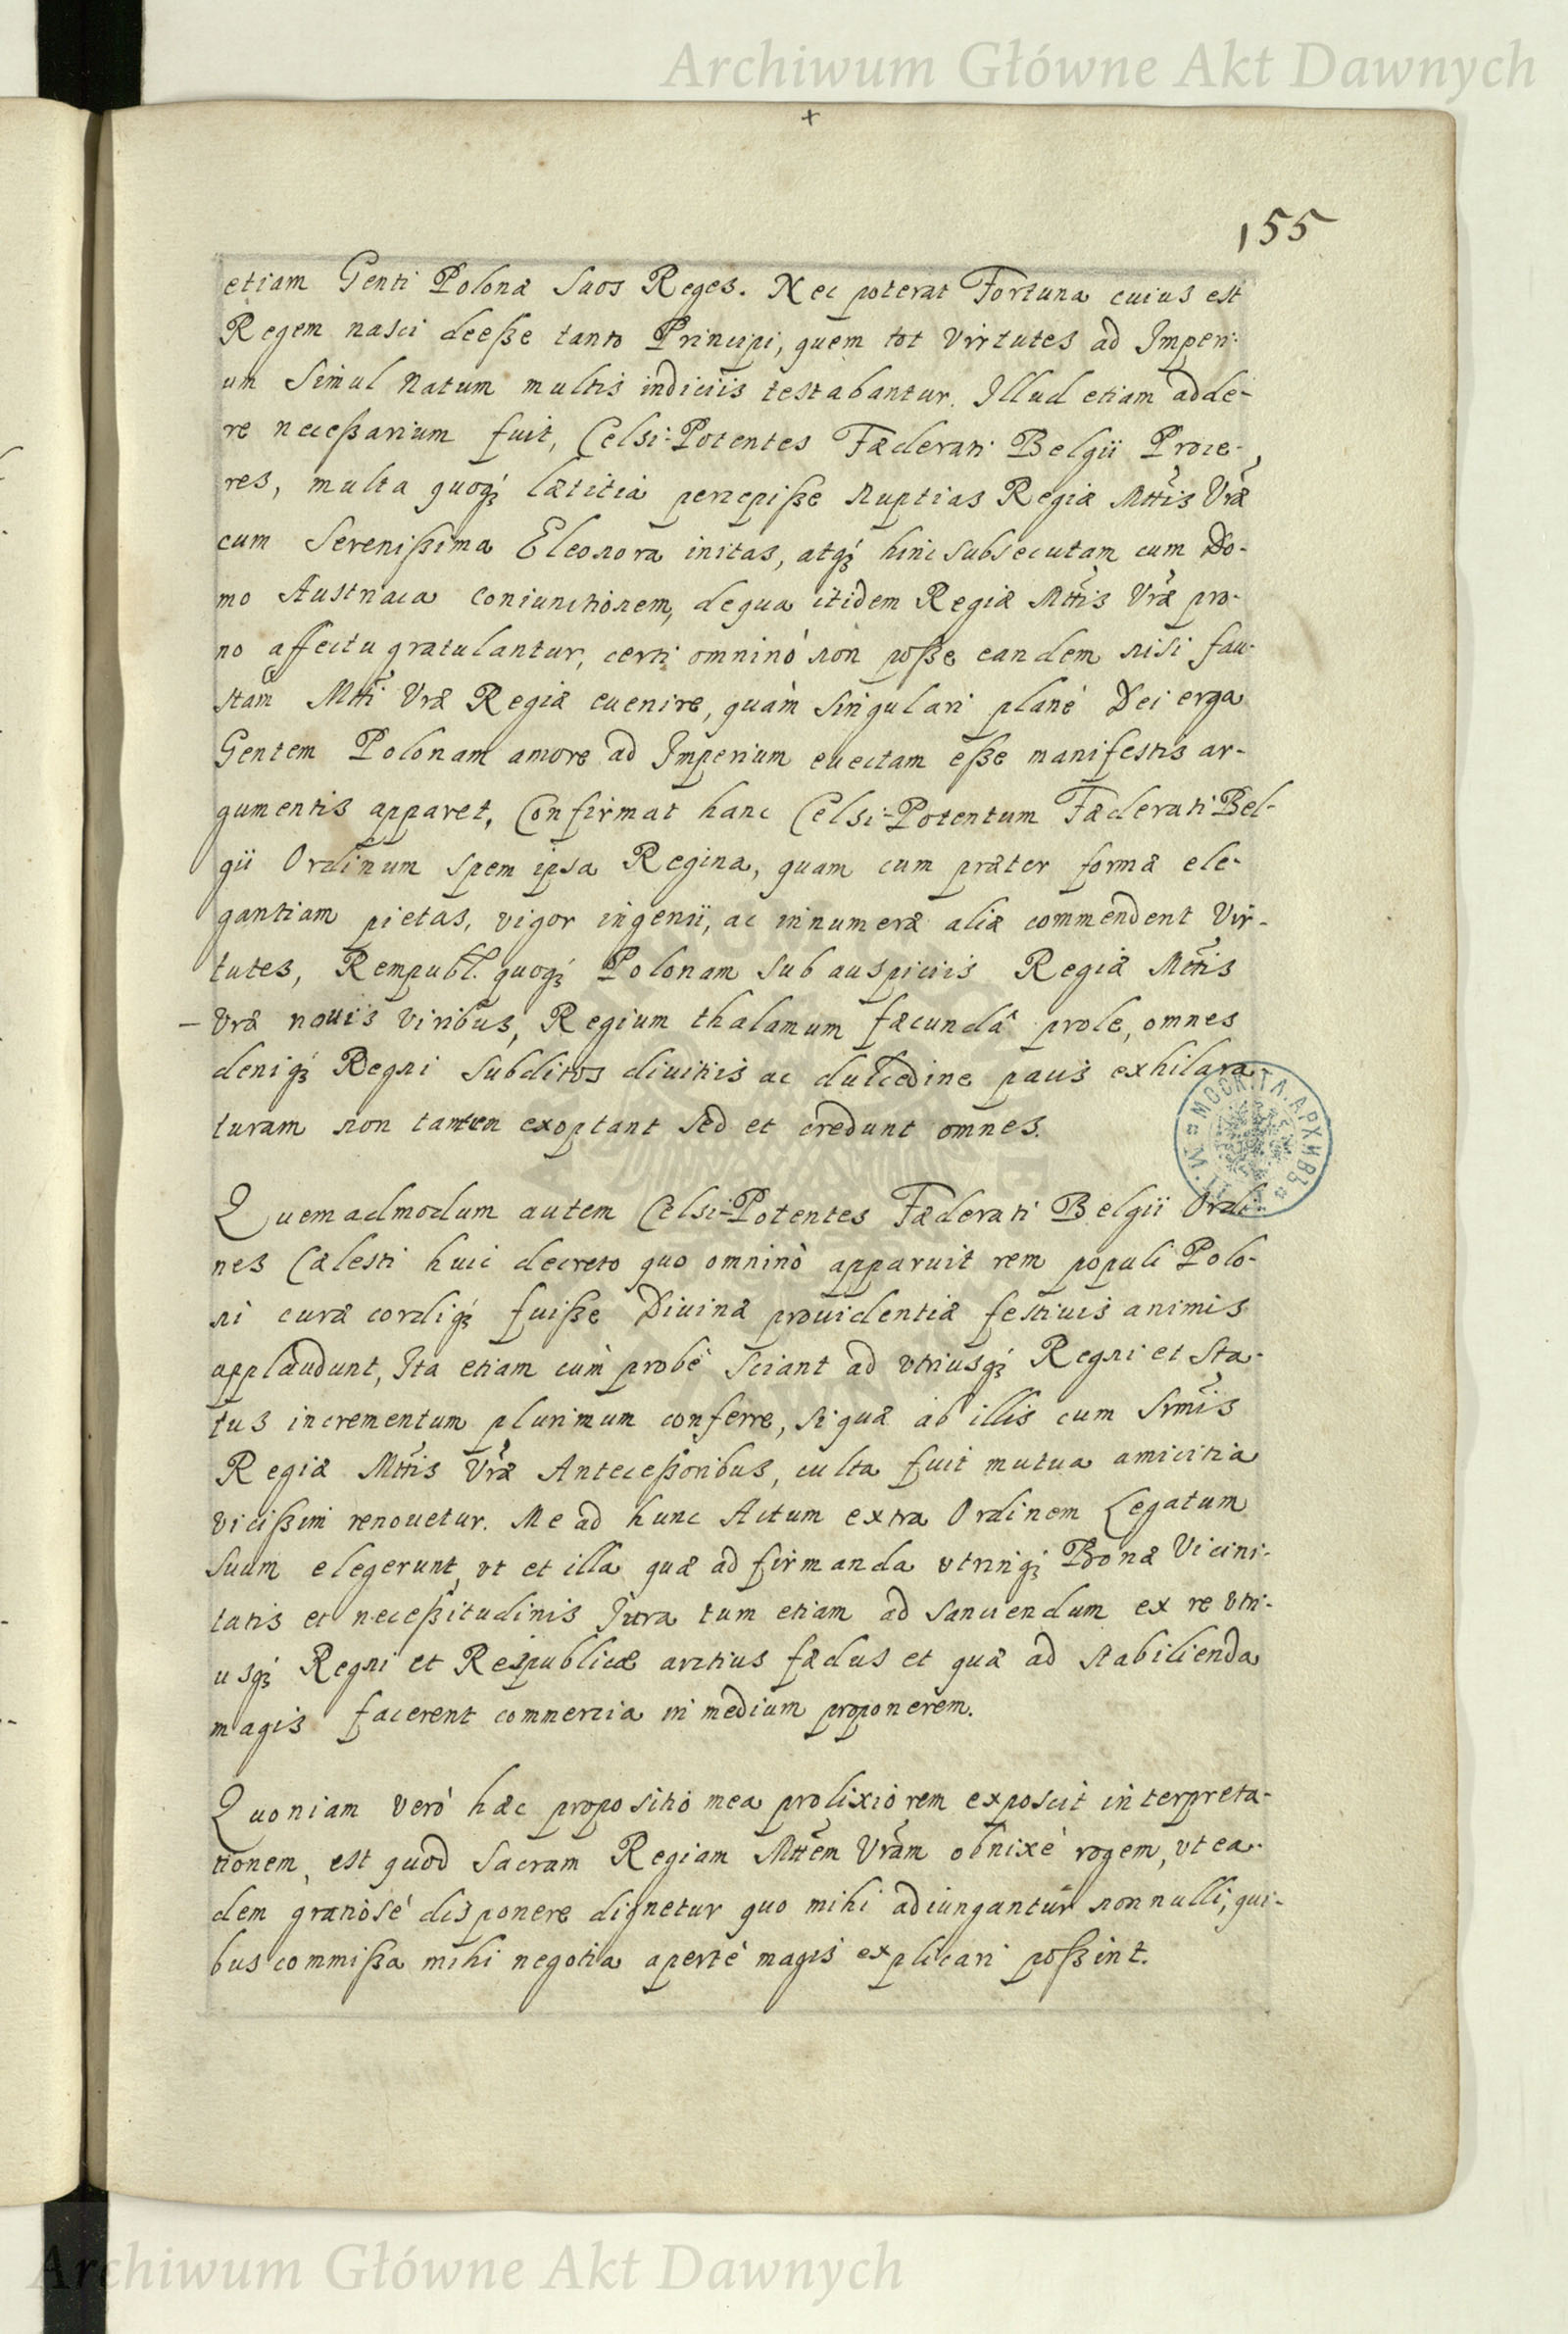 Archiwum Główne Akt Dawnych
155
etiam Genti Polonæ suos Reges. Nec poterat Fortuna cuius est
Regem nasci deesse tanto Principi, quem tot Virtutes ad Imperi-
um Simul Natum multis indiciis testabantur. Illud etiam adde-
re necessarium fuit, Celsi-Potentes Fæderati Belgii Proce-
res, multa quoq₃ lætitia percepisse Nuptias Regiæ Mttis Vræ
cum Serenissima Eleonora initas, atq₃ hinc subsecutam cum Do-
mo Austriaca Coniunctionem, de qua itidem Regiæ Mttis Vræ pro-
no affectu gratulantur, certi omninò non posse eandem nisi fau-
stam Mtti Vræ Regiæ euenire, quàm singulari planè Dei erga
Gentem Polonam amore ad Imperium euectam esse manifestis ar-
gumentis apparet, Confirmat hanc Celsi-Potentum Fæderati Bel-
gii Ordinum spem ipsa Regina, quam cum præter formæ ele-
gantiam pietas, vigor ingenii, ac innumeræ aliæ commendent Vir-
tutes, Rempubl. quoq₃ Polonam sub auspiciis Regiæ Mttis
– Vræ nouis viribus, Regium thalamum fæcundâ prole, omnes
deniq₃ Regni Subditos diuitiis ac dulcedine pacis exhilara
turam non tantum exoptant sed et credunt omnes.
Quemadmodum autem Celsi-Potentes Fæderati Belgii Ordi
nes Cælesti huic decreto quo omninò apparuit rem populi Polo-
ni curæ cordiq₃ fuisse Diuinæ prouidentiæ festiuis animis
applaudunt, Ita etiam cum probè sciant ad vtriusq₃ Regni et Sta-
tus incrementum plurimum conferre, si quæ ab illis cum Srmis
Regiæ Mttis Vræ Antecessoribus, culta fuit mutua amicitia
vicissim renouetur. Me ad hunc Actum extra Ordinem Legatum
suum elegerunt, vt et illa quæ ad firmanda vtrinq₃ Bonæ Vicini-
tatis et necessitudinis Jura tum etiam ad sanciendum ex re vtri-
usq₃ Regni et Reipublicæ arctius fædus et quæ ad stabilienda
magis facerent commercia in medium proponerem.
Quoniam verò hæc propositio mea prolixiorem exposcit interpreta-
tionem, est quod Sacram Regiam Mttem Vram obnixè rogem, vt ea-
dem gratiosè disponere dignetur quo mihi adiungantur nonnulli, qui-
bus commissa mihi negotia apertè magis explicari possint.
Archiwum Główne Akt Dawnych